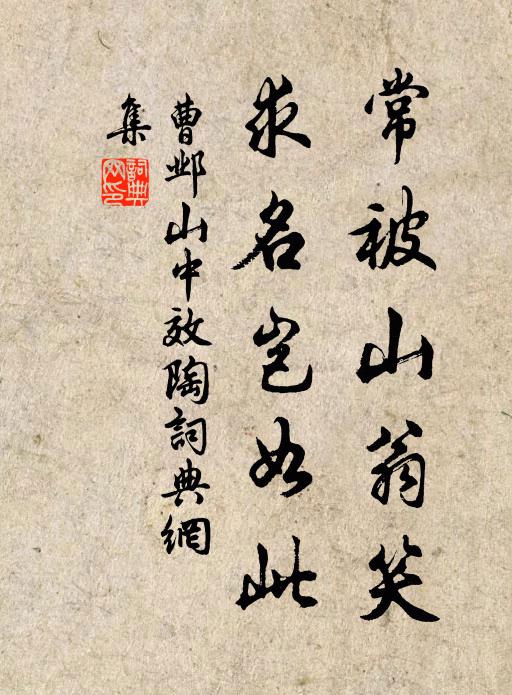 常被山翁笑
求名岂如此
曹邺山中效陶詞典網
集
詞典網印